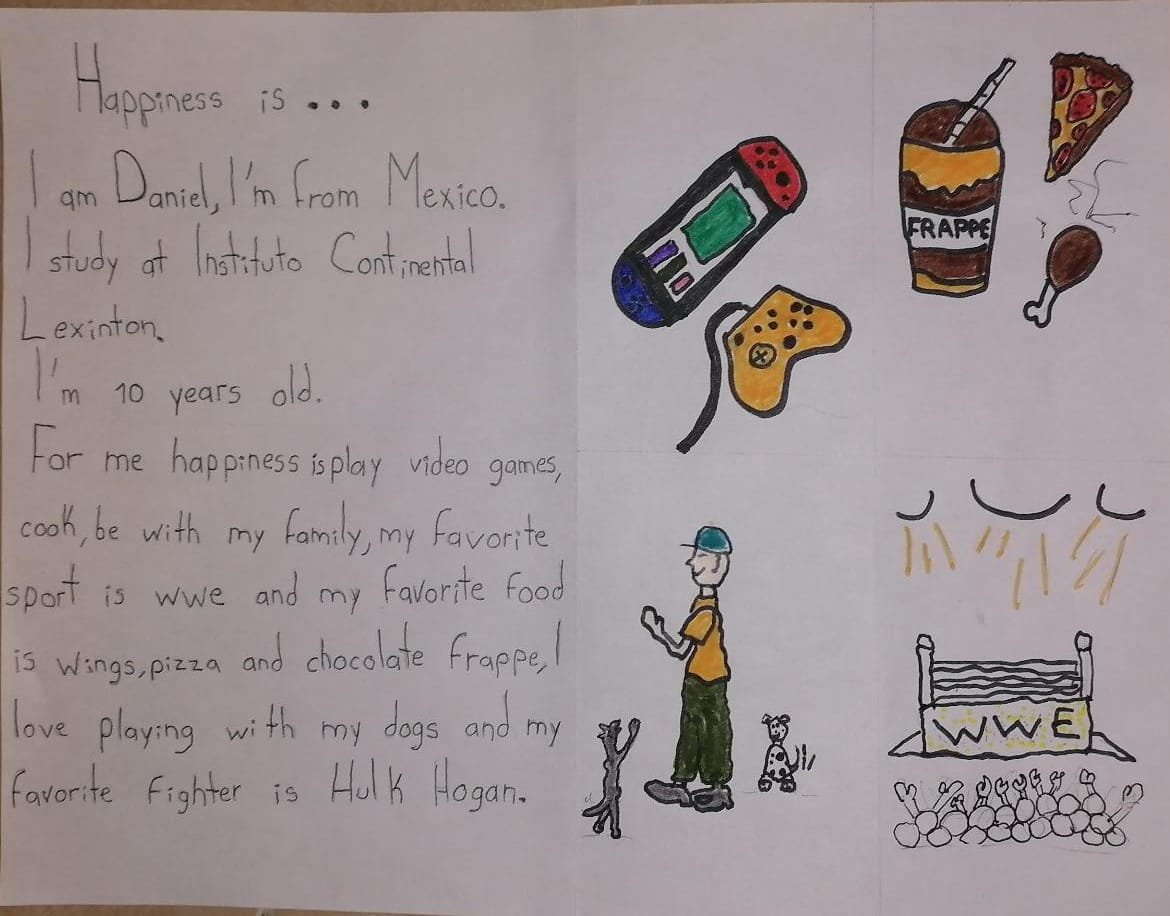 Happiness is...
I am Daniel, I'm from Mexico.
I study at Instituto Continental
Lexinton.
I'm 10 years old.
For me happiness is play video games,
cook, be with my family, my favorite
sport is wwe and my favorite food
is wings, pizza and chocolate frappe, I
love playing with my dogs and my
favorite fighter is Hulk Hogan.
FRAPPE
WWE